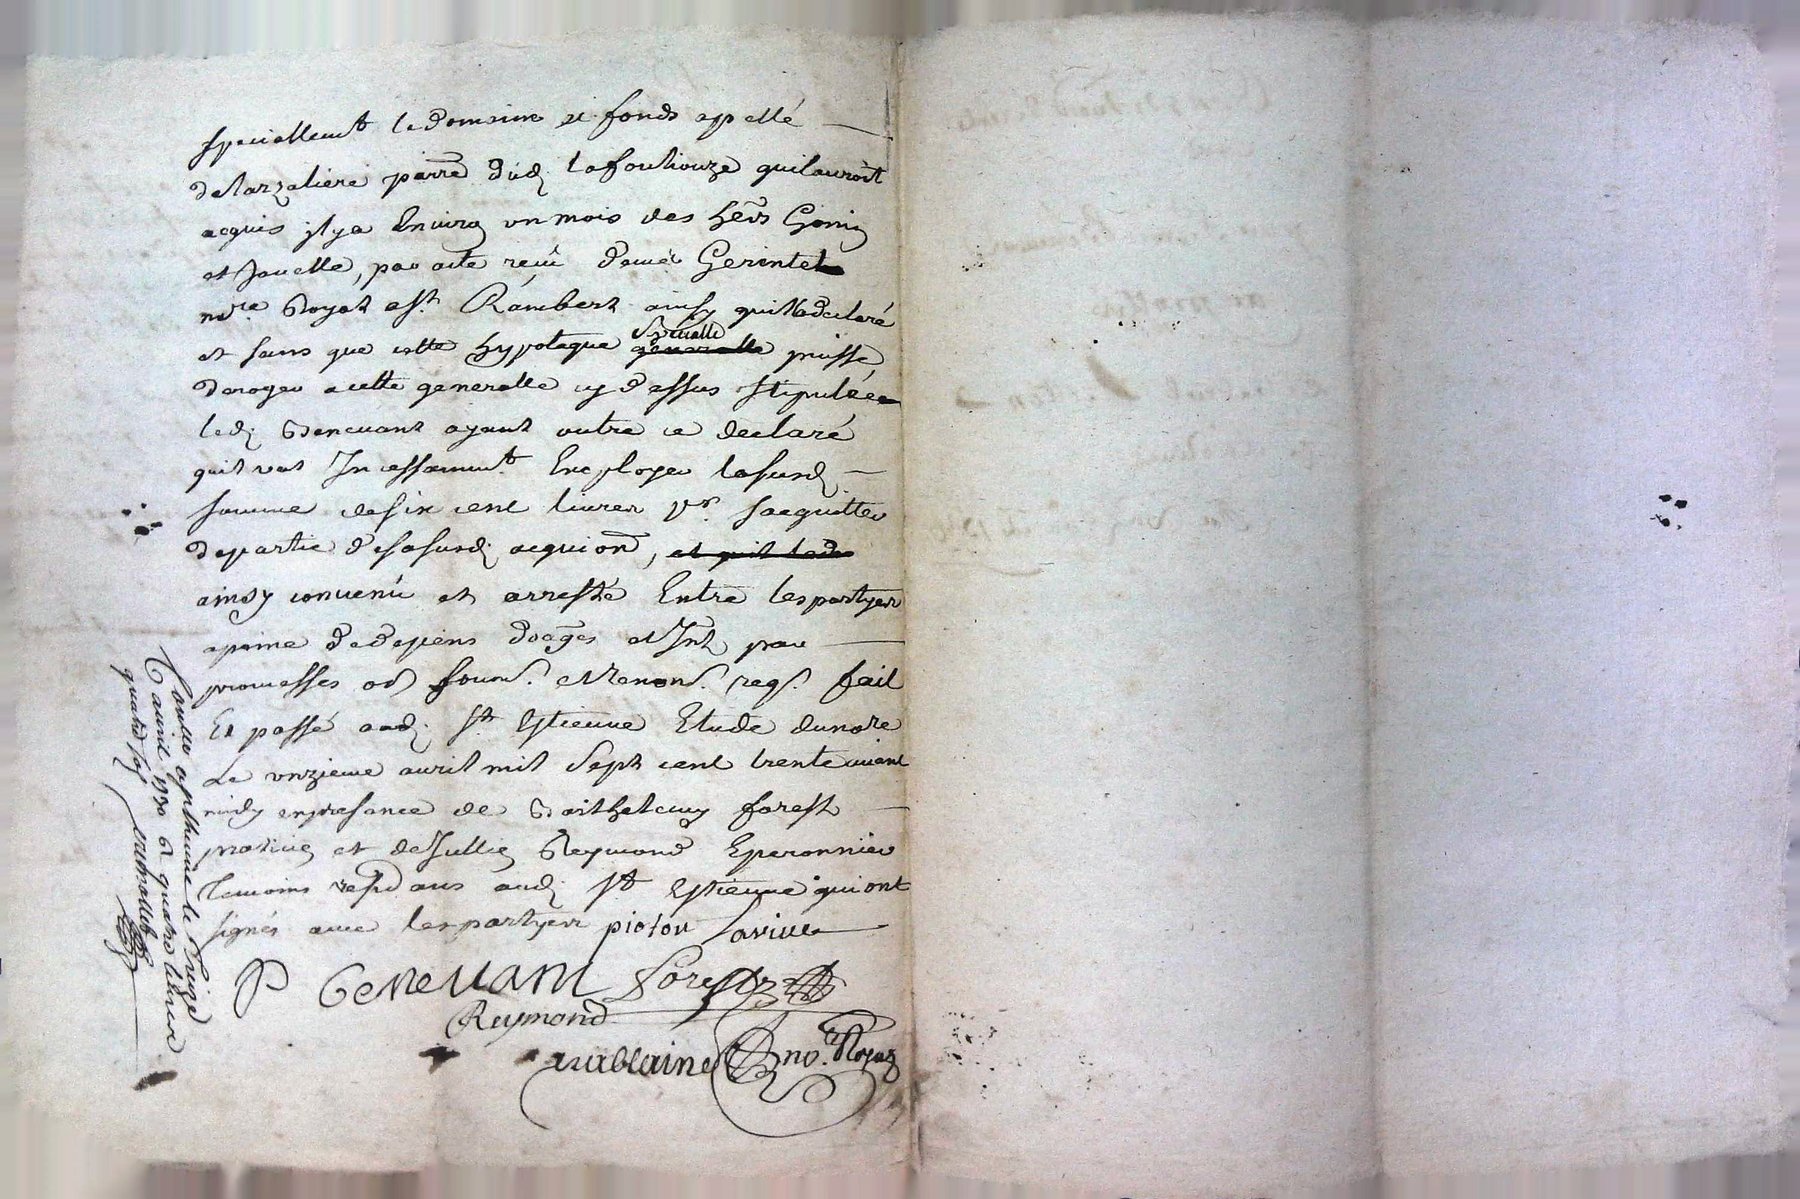 speciallemt le domaine et fonds appellé
delarzaliere parre dud. lafouliouze quil auroit
acquis jl y a Environ un mois des hers Gonin
et Javelle, par acte reçu dem.e Gerintet
nore Royal a St. Rambert ainsy quil la declaré
et sans que cette hypoteque specialle generalle puisse
deroger a cette generalle cy dessus stipulée
led. Benevant ayant outre ce declaré
quil vat Incessammt Employer lasusd.
somme desix cent livres pr. sacquitter
departie desasusd. acquion, et quil lade
ainsy convenu et arresté Entre lespartyes
apeine dedepens doages et Intt par
promesses ob soum. et Renon. req. fait
Et passé aud. St. Estienne Etude dunore
Le unzieme avril mil sept cent trente avant
midy enpresance de Barthelemy forest
praticien et deJullien Reymond Eperonnier
temoins resid ans aud. St Estienne qui ont
signés avec lespartyes pioton Savives
P BeneVAnt Forest
Reymond
no.re Royal
Controllé a St. Estienne le treize
avril 1730 R quatre livres
quatre sols